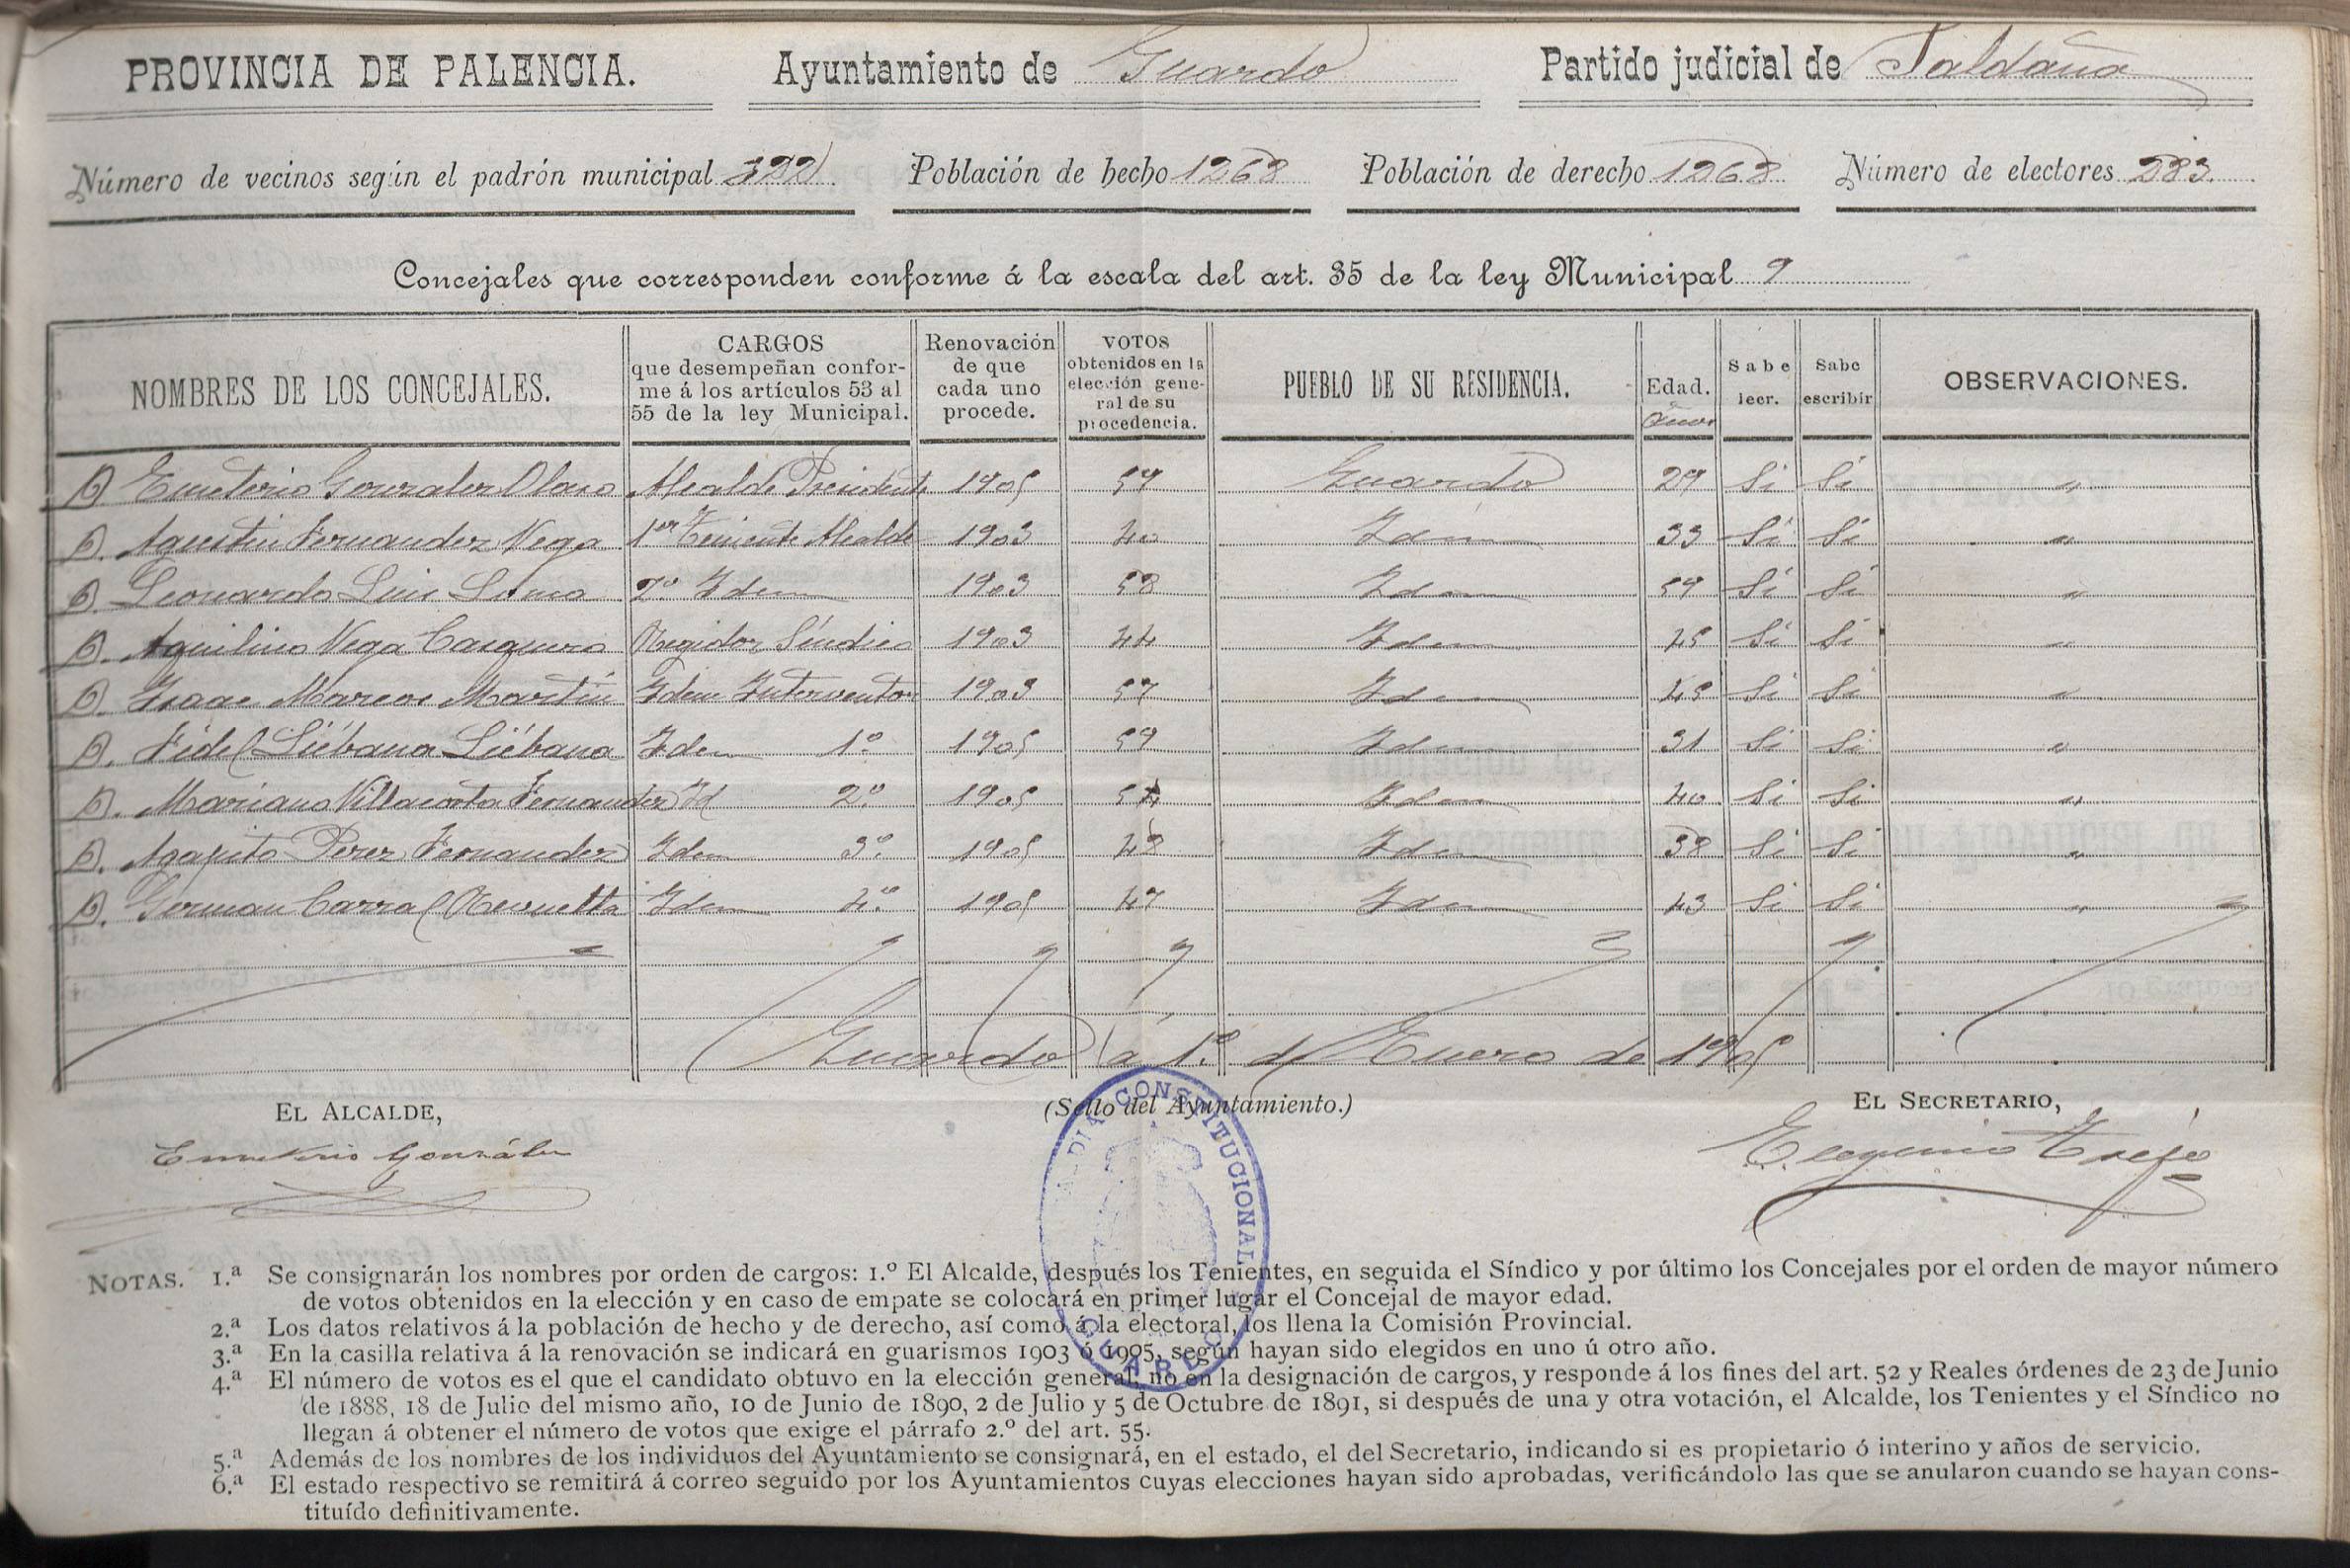 PROVINCIA DE PALENCIA. Ayuntamiento de Guardo Partido judicial de Saldaña
Número de vecinos según el padrón municipal 322 Población de hecho 1268 Población de derecho 1268 Número de electores 283.
Concejales que corresponden conforme á la escala del art. 35 de la ley Municipal 9
NOMBRES DE LOS CONCEJALES. CARGOS que desempeñan confor-me á los artículos 53 al 55 de la ley Municipal. Renovación de que cada uno procede. VOTOS obtenidos en la elección gene-ral de su procedencia. PUEBLO DE SU RESIDENCIA. Edad. Años Sabe leer. Sabe escribir OBSERVACIONES.
D. Emeterio Gonzalez Alcalde Presidente 1905 59 Guardo 29 Si Si "
D. Agustin Fernandez Vega 1er Teniente Alcalde 1903 40 Idem 33 Si Si "
D. Leonardo Luis 2º Idem 1903 58 Idem 59 Si Si "
D. Aquilino Vega Regidor Síndico 1903 44 Idem 45 Si Si "
D. Isaac Marcos Martin Idem Interventor 1903 57 Idem 45 Si Si "
D. Fidel Liébana Liébana Idem 1º 1905 59 Idem 31 Si Si "
D. Mariano Villacorta Fernandez Id 2º 1905 54 Idem 40 Si Si "
D. Agapito Perez Fernandez Idem 3º 1905 48 Idem 38 Si Si "
D. German Carral Revuelta Idem 4º 1905 47 Idem 43 Si Si "
Guardo á 1º de Enero de 1905
EL ALCALDE, (Sello del Ayuntamiento.) EL SECRETARIO,
Emeterio González Trejo
ALCALDIA CONSTITUCIONAL
GUARDO
NOTAS. 1.ª Se consignarán los nombres por orden de cargos: 1.º El Alcalde, después los Tenientes, en seguida el Síndico y por último los Concejales por el orden de mayor número
de votos obtenidos en la elección y en caso de empate se colocará en primer lugar el Concejal de mayor edad.
2.ª Los datos relativos á la población de hecho y de derecho, así como á la electoral, los llena la Comisión Provincial.
3.ª En la casilla relativa á la renovación se indicará en guarismos 1903 ó 1905, según hayan sido elegidos en uno ú otro año.
4.ª El número de votos es el que el candidato obtuvo en la elección general, no en la designación de cargos, y responde á los fines del art. 52 y Reales órdenes de 23 de Junio
de 1888, 18 de Julio del mismo año, 10 de Junio de 1890, 2 de Julio y 5 de Octubre de 1891, si después de una y otra votación, el Alcalde, los Tenientes y el Síndico no
llegan á obtener el número de votos que exige el párrafo 2.º del art. 55.
5.ª Además de los nombres de los individuos del Ayuntamiento se consignará, en el estado, el del Secretario, indicando si es propietario ó interino y años de servicio.
6.ª El estado respectivo se remitirá á correo seguido por los Ayuntamientos cuyas elecciones hayan sido aprobadas, verificándolo las que se anularon cuando se hayan cons-
tituído definitivamente.